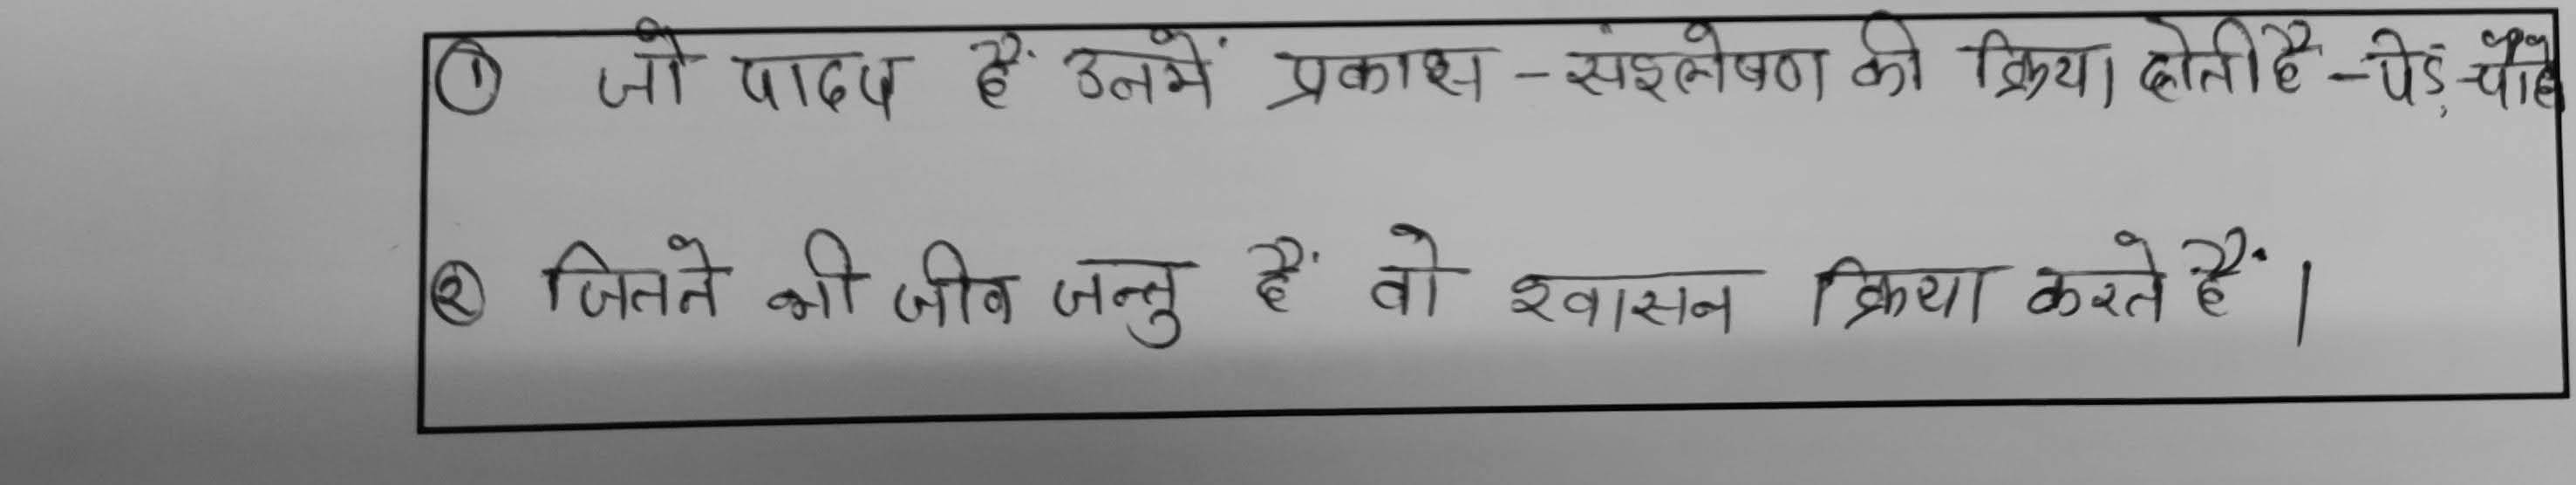 ① जो पादप हैं उनमें प्रकाश - संश्लेषण की क्रिया होती है - पेड़, पौधे
② जितने भी जीव जन्तु हैं वो श्वासन क्रिया करते हैं ।